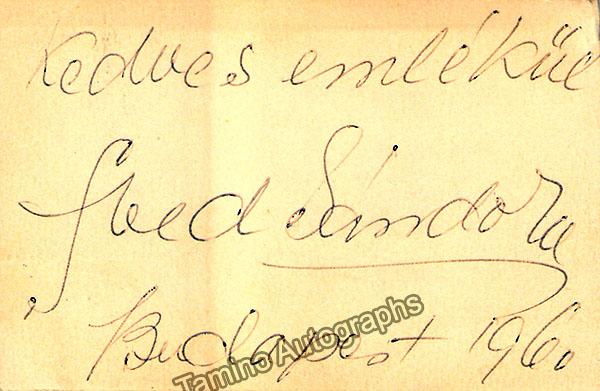 Kedves emlékül
Svéd Sándor
Budapest 1960
Tamino Autographs